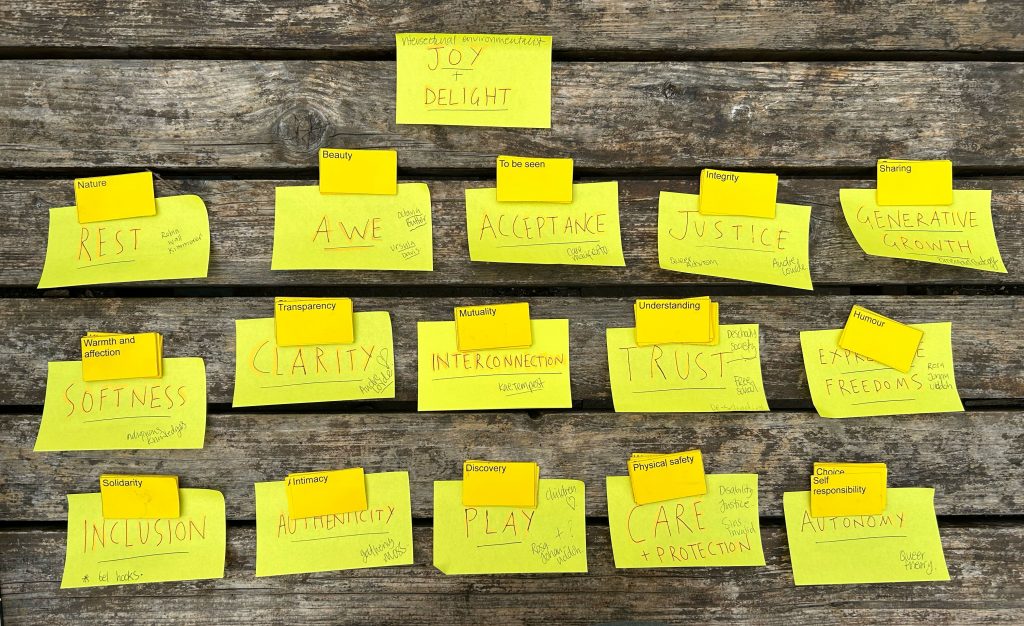 intersectional environmentalist
JOY
+
DELIGHT
Nature
REST
Robin
Wall
Beauty
AWE
Octavia
Butler
Ursula
To be seen
ACCEPTANCE
Integrity
JUSTICE
Sharing
GENERATIVE
GROWTH
Warmth and
affection
SOFTNESS
Transparency
CLARITY
Mutuality
INTERCONNECTION
Kae Tempest
Understanding
TRUST
Free
School
Humour
FREEDOMS
Rosa
Solidarity
INCLUSION
* bel hooks.
Intimacy
AUTHENTICITY
Moss
Discovery
PLAY
Children
♡
+ ?
Rosa
Physical safety
CARE
+ PROTECTION
Disability
Justice
Sins
invalid
Choice
Self
responsibility
AUTONOMY
Queer
theory